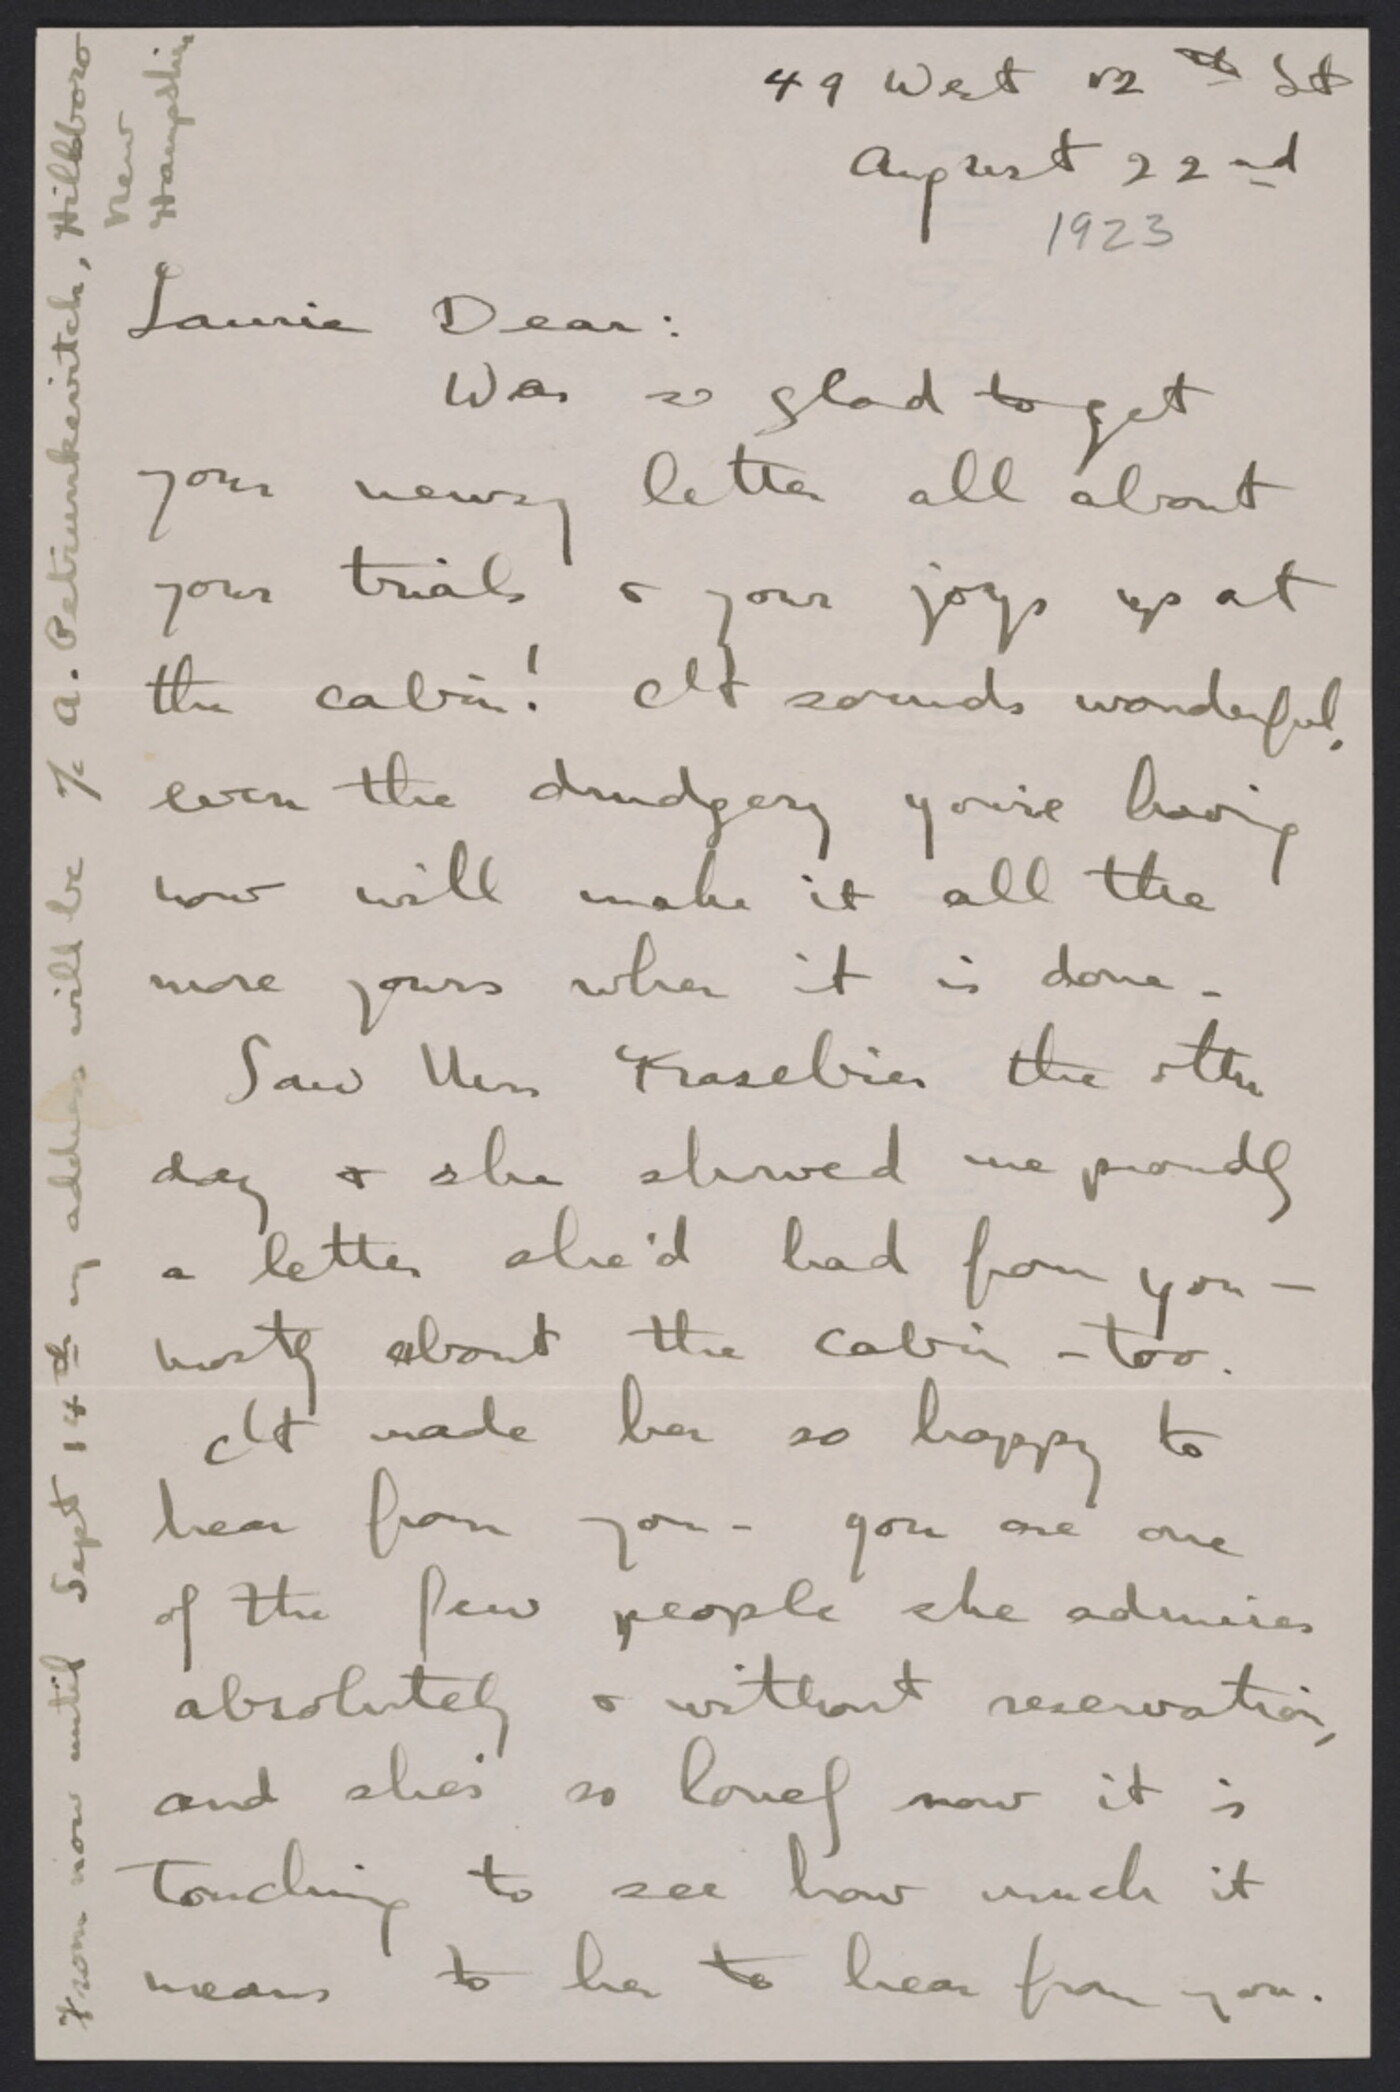 49 West 12th St
August 22nd
1923
Laurie Dear:
Was so glad to get
your newsy letter all about
your trials & your joys up at
the cabin! It sounds wonderful,
even the drudgery you're having
now will make it all the
more yours when it is done -
Saw Mrs Kasebier the other
day & she showed me proudly
a letter she'd had from you -
mostly about the cabin - too.
It made her so happy to
hear from you - you are one
of the few people she admires
absolutely & without reservation,
and she's so lonely now it is
touching to see how much it
means to her to hear from you.
From now until Sept 14th my address will be c/o A. Petrunkevitch, Hillsboro
New
Hampshire